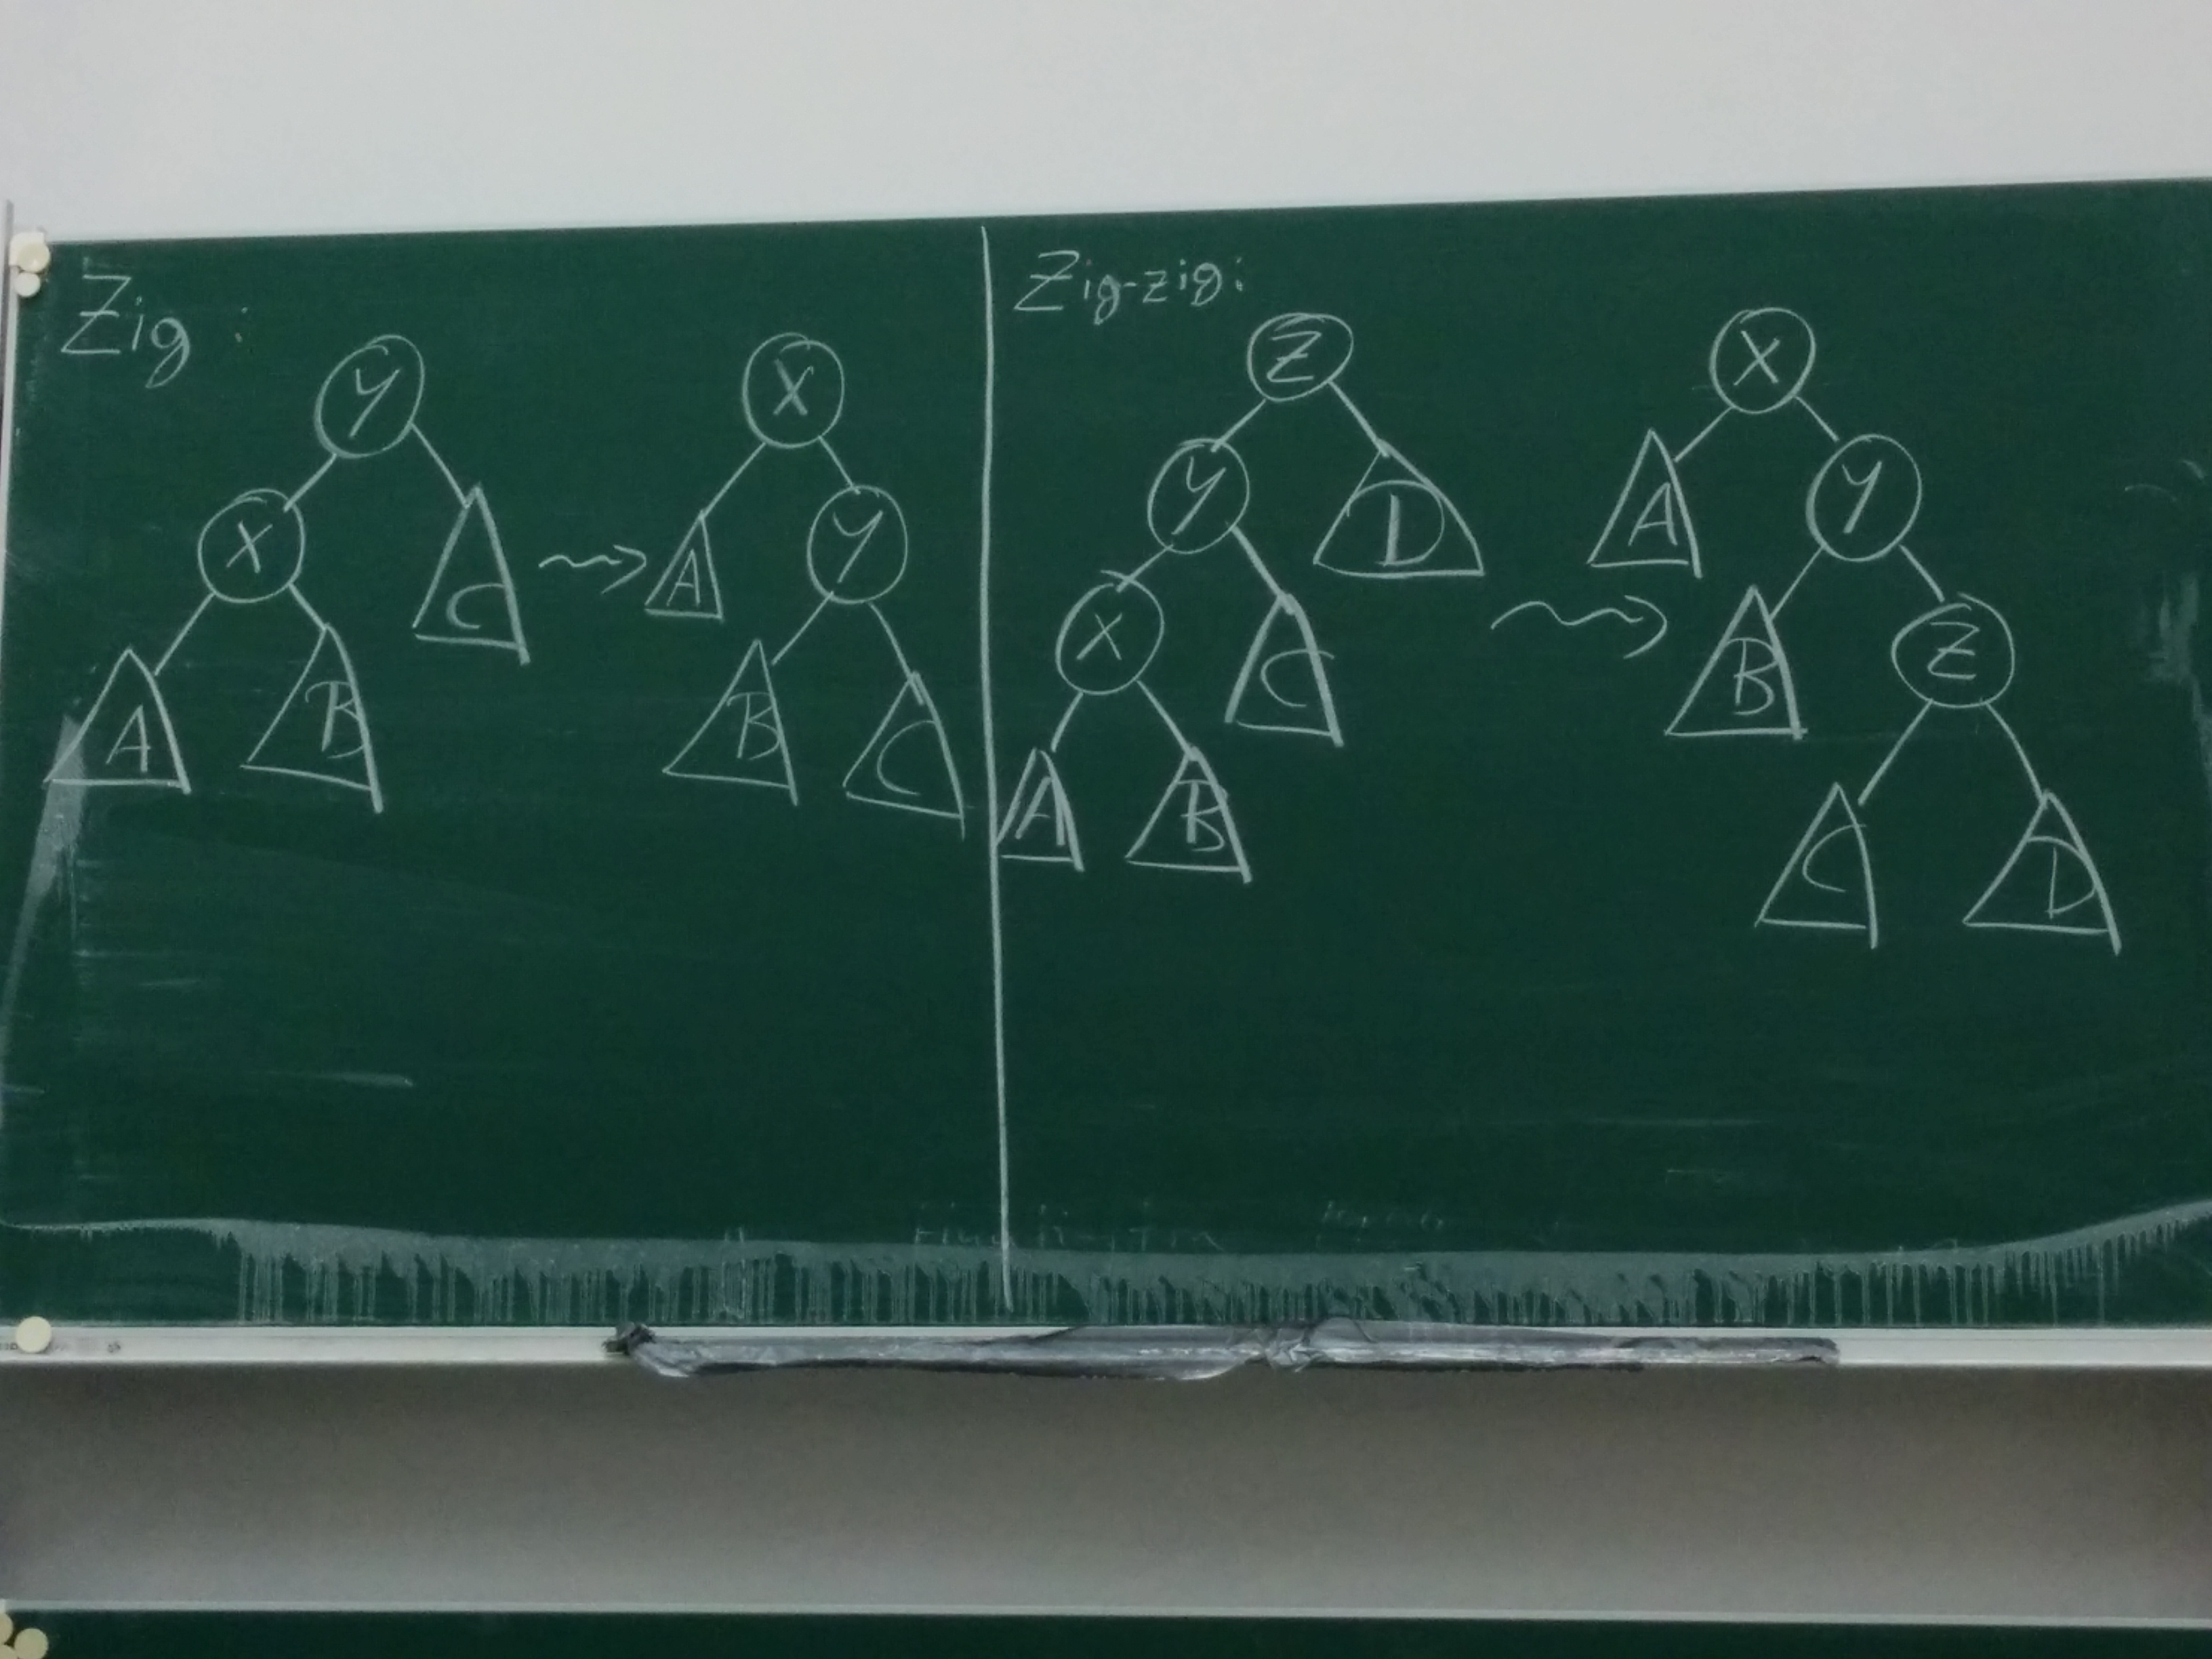 Zig:
Y
X C
A B
X
A Y
B C
Zig-zig:
Z
Y D
X C
A B
X
A Y
B Z
C D